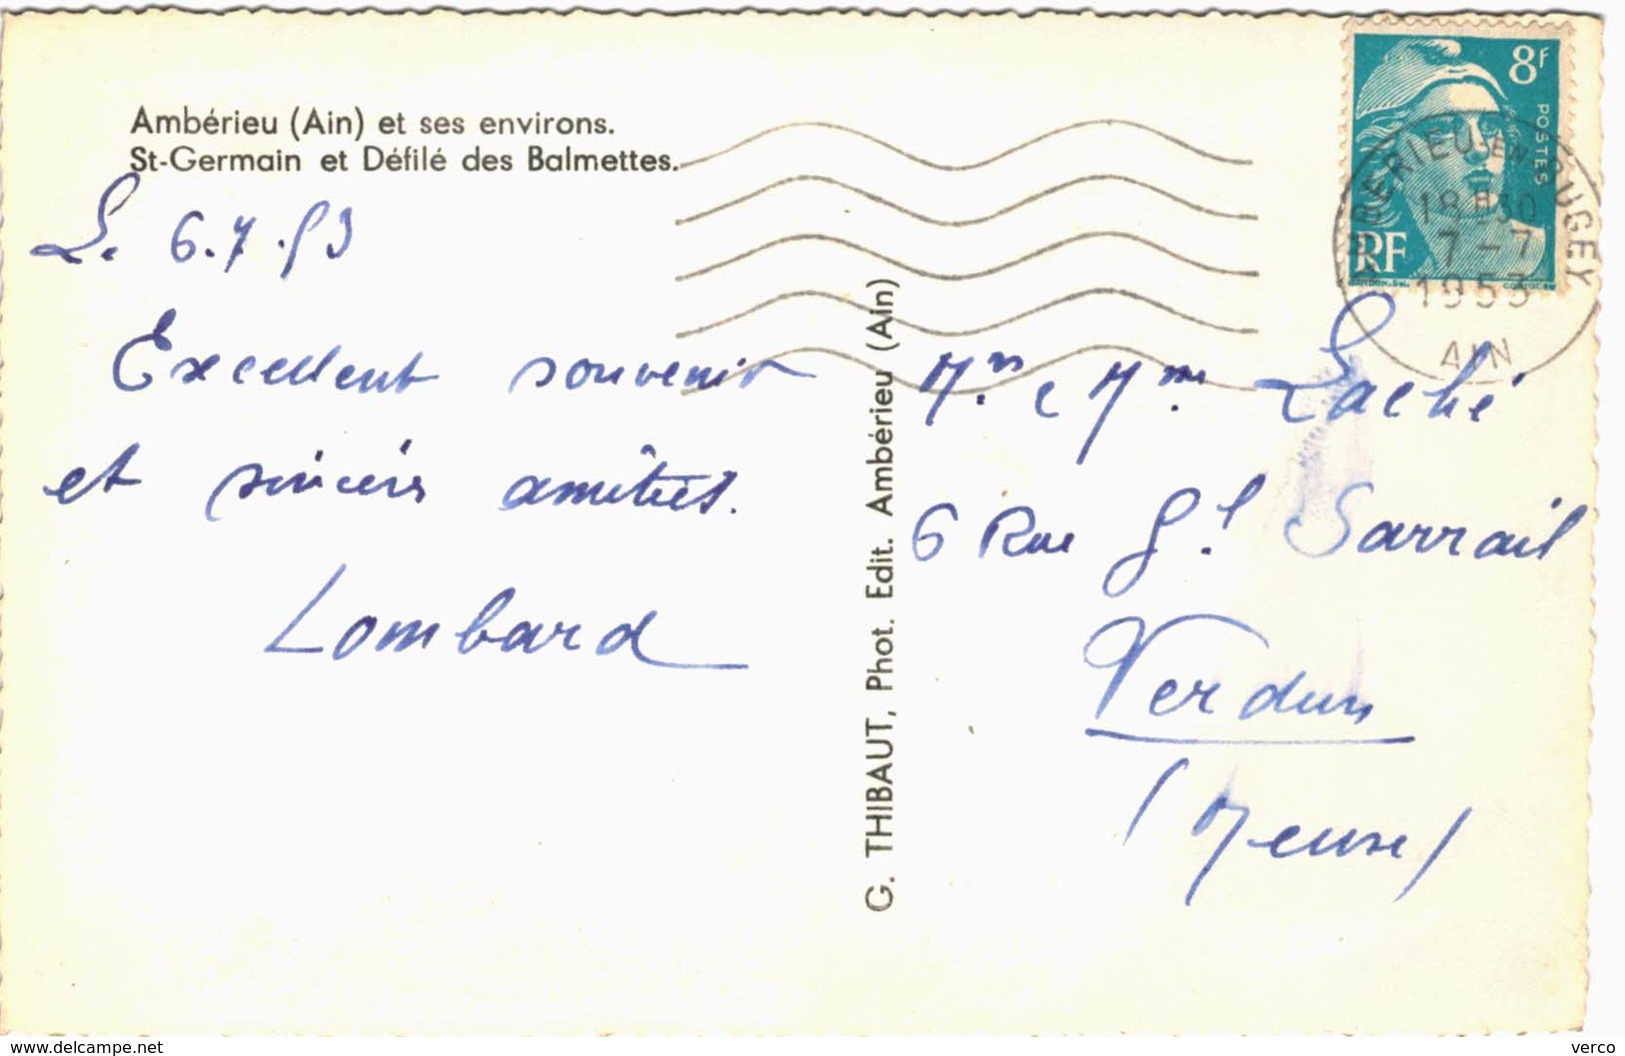 Ambérieu (Ain) et ses environs.
St-Germain et Défilé des Balmettes.
Le 6.7.53
Excellent souvenir
et sincères amitiés.
Lombard
G. THIBAUT, Phot. Edit. Ambérieu (Ain)
8F
POSTES
RF
AMBERIEU-EN-BUGEY
18H30
7-7
1953
AIN
Mr e Mme Laché
6 Rue Gl. Sarrail
Verdun
(Meuse)
www.delcampe.net
verco